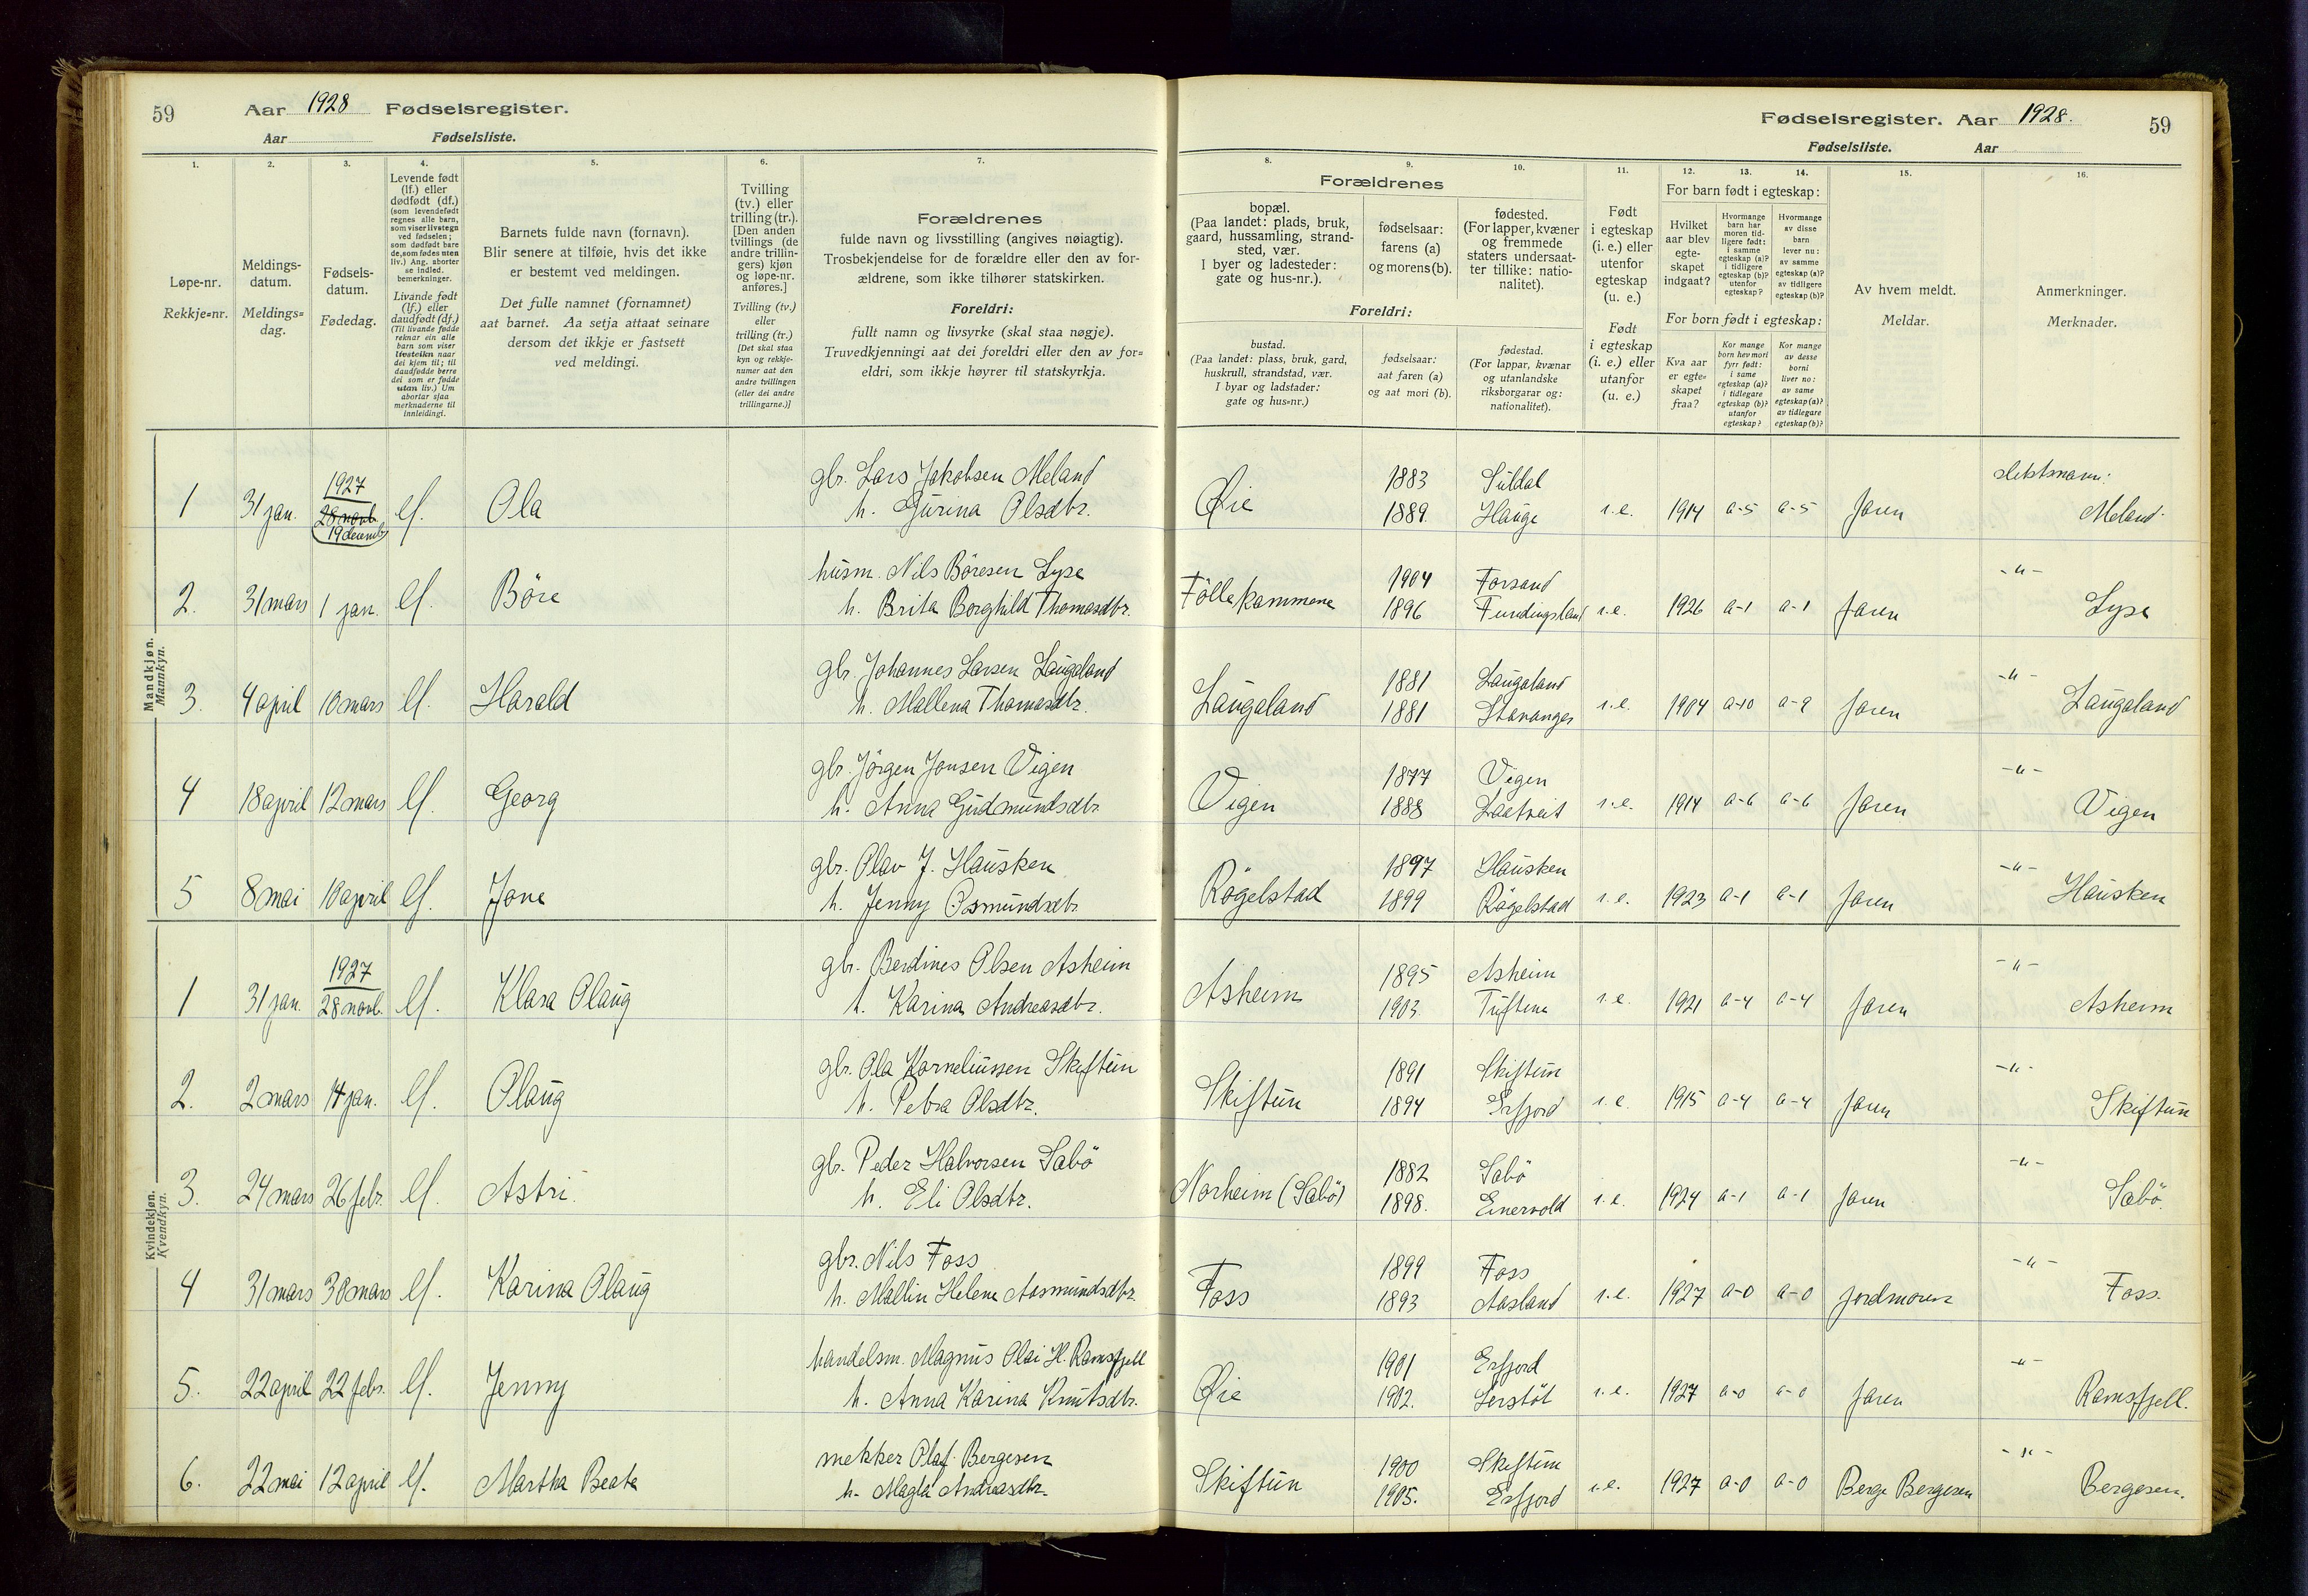 59 Aar 1928 Fødselsregister.
Aar Fødselsliste.
Fødselsregister. Aar 1928. 59
Fødselsliste. Aar
1. 2. 3. 4. 5. 6. 7.
Løpe-nr.
Rekkje=nr.
Meldings-
datum.
Meldings=
dag.
Fødsels-
datum.
Fødedag.
Levende født
(lf.) eller
dødfødt (df.)
(som levendefødt
regnes alle barn,
som viser livstegn
ved fødselen;
som dødfødt bare
de, som fødes uten
liv.) Ang. aborter
se indled.
bemerkninger.
Livande født
(lf.) eller
daudfødt (df.)
(Til livande fødde
reknar ein alle
barn som viser
livsteikn naar
dei kjem til; til
daudfødde berre
dei som er fødde
utan liv.) Um
abortar sjaa
merknaderne til
innleiding!.
Barnets fulde navn (fornavn).
Blir senere at tilføie, hvis det ikke
er bestemt ved meldingen.
Det fulle namnet (fornamnet)
aat barnet. Aa setja attaat seinare
dersom det ikkje er fastsett
ved meldingi.
Tvilling
(tv.) eller
trilling (tr.).
[Den anden
tvillings (de
andre trillin-
gers) kjøn
og løpe-nr.
anføres.]
Tvilling (tv.)
eller
trilling (tr.)
[Det skal staa
kyn og rekkje-
numer aat den
andre tvillingen
(eller dei andre
trillingarne.)]
Forældrenes
fulde navn og livsstilling (angives nøiagtig).
Trosbekjendelse for de forældre eller den av for-
ældrene, som ikke tilhører statskirken.
Foreldri:
fullt namn og livsyrke (skal staa nøgje).
Truvedkjenningi aat dei foreldri eller den av for=
eldri, som ikkje høyrer til statskyrkja.
8. 9. 10. 11. 12. 13. 14. 15. 16.
Forældrenes
bopæl.
(Paa landet: plads, bruk,
gaard, hussamling, strand-
sted, vær.
I byer og ladesteder:
gate og hus-nr.).
fødselsaar:
farens (a)
og morens (b).
fødested.
(For lapper, kvæner
og fremmede
staters undersaat-
ter tillike: natio-
nalitet).
Foreldri:
bustad.
(Paa landet: plass, bruk, gard,
huskrull, strandstad, vær.
I byar og ladstader:
gate og hus=nr.)
fødselsaar:
aat faren (a)
og aat mori (b).
fødestad.
(For lappar, kvænar
og utanlandske
riksborgarar og:
nationalitet).
Født
i egteskap
(i. e.) eller
utenfor
egteskap
(u. e.)
Født
i egteskap
(i. e.) eller
utanfor
(u. e.)
For barn født i egteskap:
Hvilket
aar blev
egte-
skapet
indgaat?
Hvormange
barn har
moren tid-
ligere født:
i samme
egteskap (a)?
i tidligere
egteskap (b)?
utenfor
egteskap?
Hvormange
av disse
barn
lever nu:
av samme
egteskap (a)?
av tidligere
egteskap (b)?
For born født i egteskap:
Kva aar
er egte=
skapet
fraa?
Kor mange
born hev mori
fyrr født:
i same
egteskap (a)?
i tidlegare
egteskap (b)?
utanfor
egteskap?
Kor mange
av desse
borni
liver no:
av same
egteskap (a)?
av tidlegare
egteskap (b)?
Av hvem meldt.
Meldar.
Anmerkninger.
Merknader.
Mandkjøn.
Mannkyn.
1 31 jan. 1927 28 novb. 19 decemb. lf. Ola gbr. Lars Jakobsen Meland
h. Gurina Olsdtr. Øie 1883 Suldal
1889. Hauge i.e. 1914 a-5 a-5 faren slektsnavn: Meland.
2. 31 mars 1 jan. lf. Böre husm. Nils Böresen Lyse
h. Brita Borghild Thomasdtr. Föllekammene 1904 Forsand
1896 Fundingsland i.e. 1926 a-1 a-1 faren -"- Lyse
3. 4 april 10 mars lf. Harald gbr. Johannes Larsen Laugaland
h. Mallena Thomasdtr. Laugaland 1881 Laugaland
1881 Stavanger i.e. 1904 a-10 a-9 faren -"- Laugaland
4 18 april 12 mars lf. Georg gbr. Jörgen Jonsen Vigen
h. Anna Gudmundsdtr. Vigen 1877 Vigen
1888 Laatveit i.e. 1914 a-6 a-6 faren -"- Vigen
5 8 mai 10 april lf. Jone gbr. Olav J. Hausken
h. Jenny Osmundsdtr. Rögelstad 1897 Hausken
1899 Rögelstad i.e. 1923 a-1 a-1 faren -"- Hausken
Kvindekjøn.
Kvendkyn.
1 31 jan. 1927 28 novb. lf. Klara Olaug gbr. Berdines Olsen Asheim
h. Karina Andreasdtr. Asheim 1895 Asheim
1903. Tuftene i.e. 1921 a-4 a-4 faren -"- Asheim
2. 2 mars 14 jan. lf. Olaug gbr. Ola Korneliussen Skiftun
h. Petra Olsdtr. Skiftun 1891 Skiftun
1894 Erfjord i.e. 1915 a-4 a-4 faren -"- Skiftun
3. 24 mars 26 febr. lf. Astri. gbr. Peder Halvorsen Sabö
h. Eli Olsdtr. Norheim (Sabö) 1882 Sabö
1898. Einervold i.e. 1924 a-1 a-1 faren -"- Sabö.
4 31 mars 30 mars lf. Karina Olaug gbr. Nils Foss
h. Mallin Helene Aasmundsdtr. Foss 1899 Foss
1893 Aasland i.e. 1927 a-0 a-0 jordmoren -"- Foss.
5. 22 april 22 febr. lf. Jenny handelsm. Magnus Olai H. Ramsfjell
h. Anna Karina Knutsdtr. Øie 1901 Erfjord
1902. i.e. 1927 a-0 a-0 faren -"- Ramsfjell.
6. 22 mai 12 april lf. Martha Beate snekker Olaf Bergesen
h. Magla Andreasdtr. Skiftun 1900 Skiftun
1905. Erfjord i.e. 1927 a-0 a-0 Berge Bergesen -"- Bergesen.